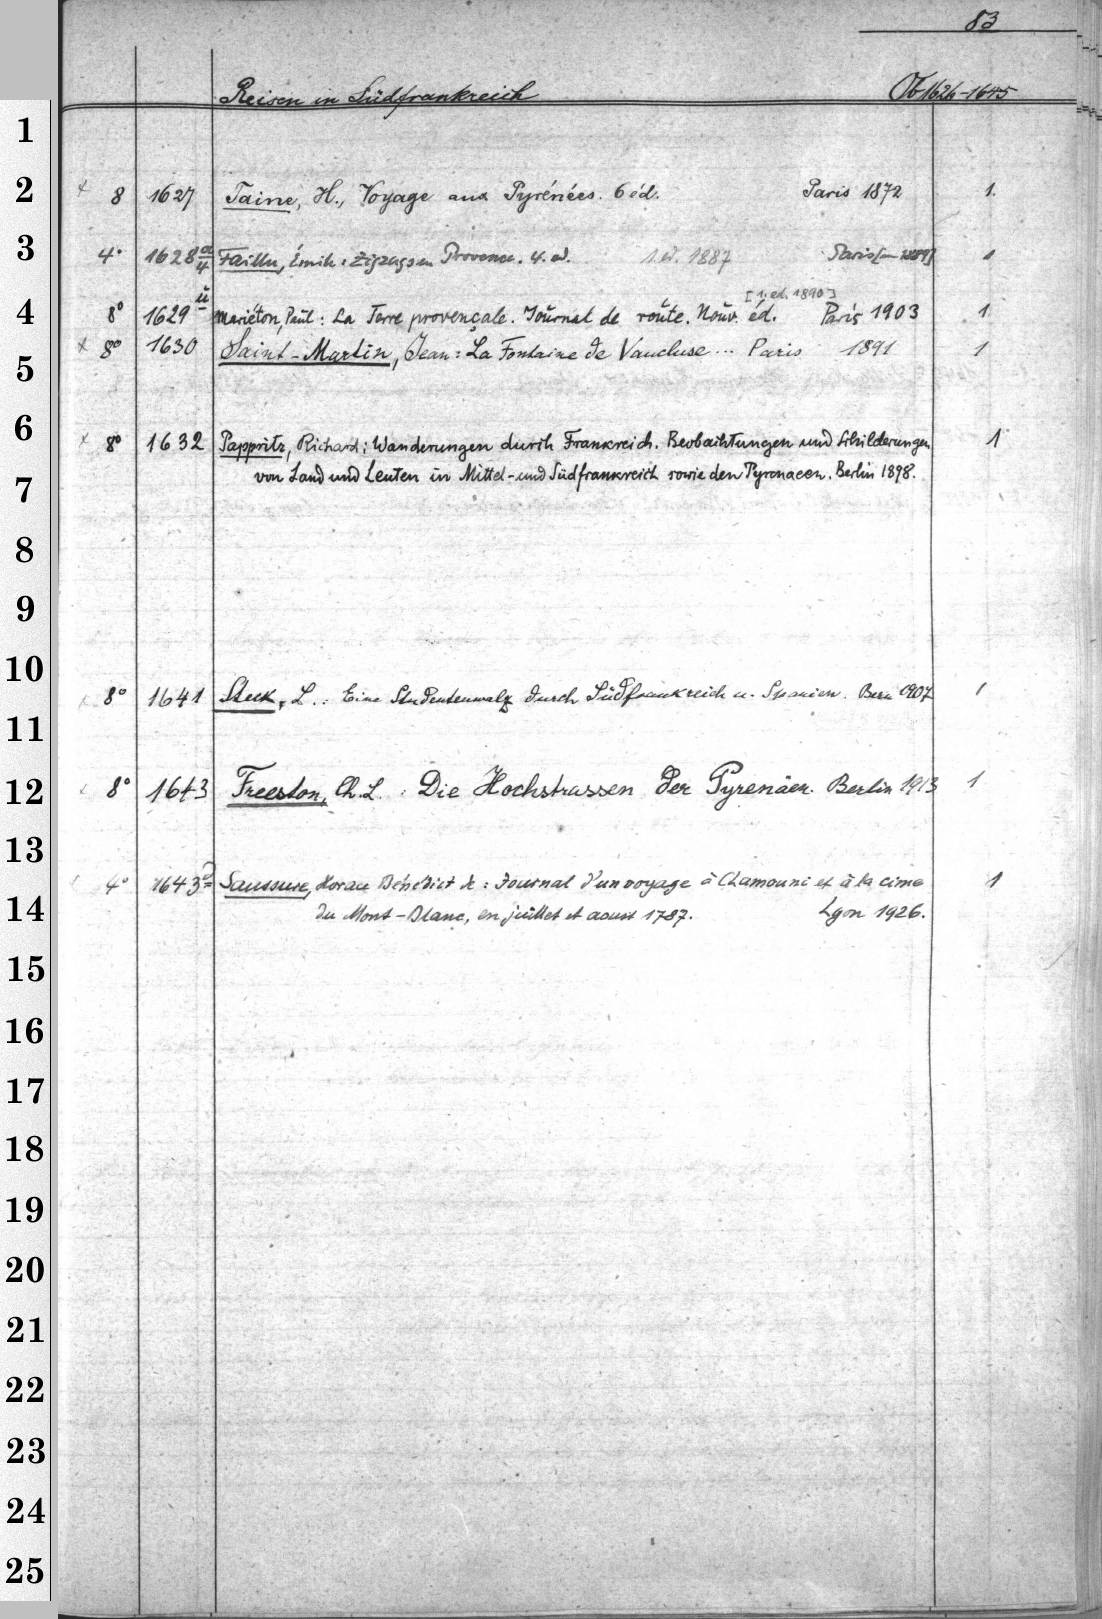 83
Reisen in Südfrankreich Ob 1626-1645
1
2 × 8 1627 Taine, H., Voyage aux Pyrénées. 6 éd. Paris 1872 1.
3 4° 1628 a/4 Émile: Zigzags en Provence. 4. ed. 1. ed. 1887 Paris 1
[1. ed. 1890]
4 8° 1629 ü Mariéton, Paul: La Terre provençale. Journal de route. Nouv. éd. Paris 1903 1
× 8° 1630 Saint-Martin, Jean: La Fontaine de Vaucluse... Paris 1891 1
5
6 × 8° 1632 Pappritz, Richard: Wanderungen durch Frankreich. Beobachtungen und Schilderungen 1
7 von Land und Leuten in Mittel- und Südfrankreich sowie den Pyrenaeen. Berlin 1898.
8
9
10
× 8° 1641 Steck, L.: Eine Studentenwalz durch Südfrankreich u. Spanien. Bern 1907 1
11
12 × 8° 1643 Freeston, Ch. L.: Die Hochstrassen der Pyrenäen. Berlin 1913 1
13
4° 1643 a Saussure, Horace Bénédict de: Journal d'un voyage à Chamouni et à la cime 1
14 du Mont-Blanc, en juillet et aoust 1787. Lyon 1926.
15
16
17
18
19
20
21
22
23
24
25